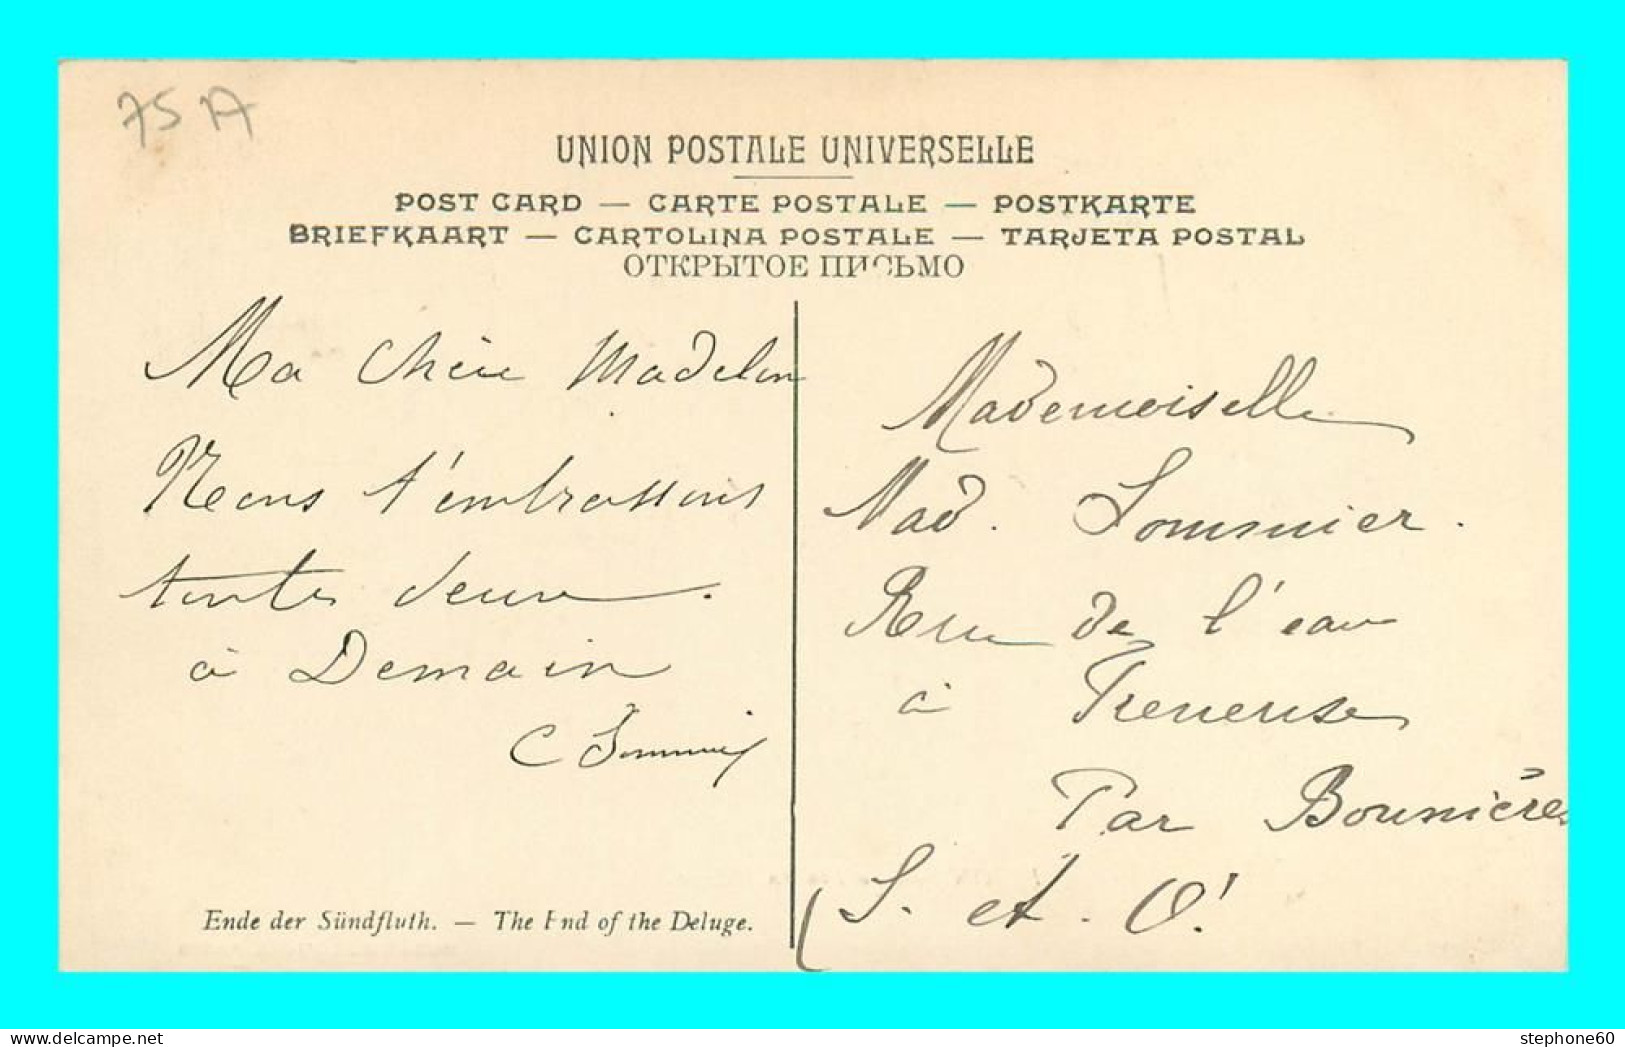 75 A
UNION POSTALE UNIVERSELLE
POST CARD — CARTE POSTALE — POSTKARTE
BRIEFKAART — CARTOLINA POSTALE — TARJETA POSTAL
ОТКРЫТОЕ ПИСЬМО
Ma Chère Madelon
Nous t'embrassons
toutes deux.
à Demain
C Sommier
Ende der Sündfluth. — The End of the Deluge.
Mademoiselle
Mad. Sommier.
Rue de l'eau
à Freneuse
Par Bonnières
S. et. O.
stephone60